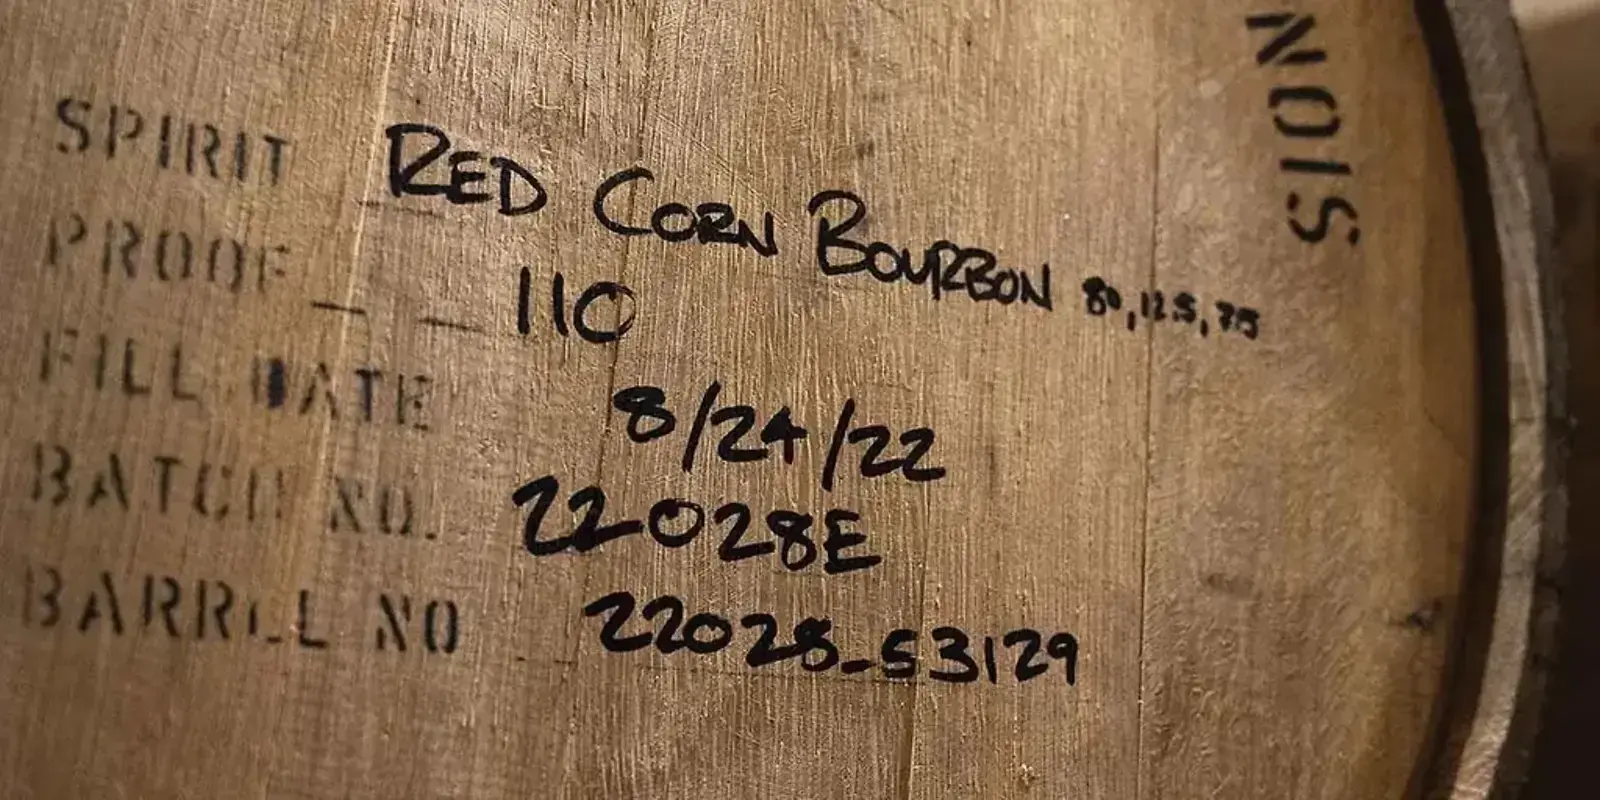 SPIRIT RED CORN BOURBON 80, 12.5, 7.5
PROOF 110
FILL DATE 8/24/22
BATCH NO. 22028E
BARREL NO 22028-53129
NOIS